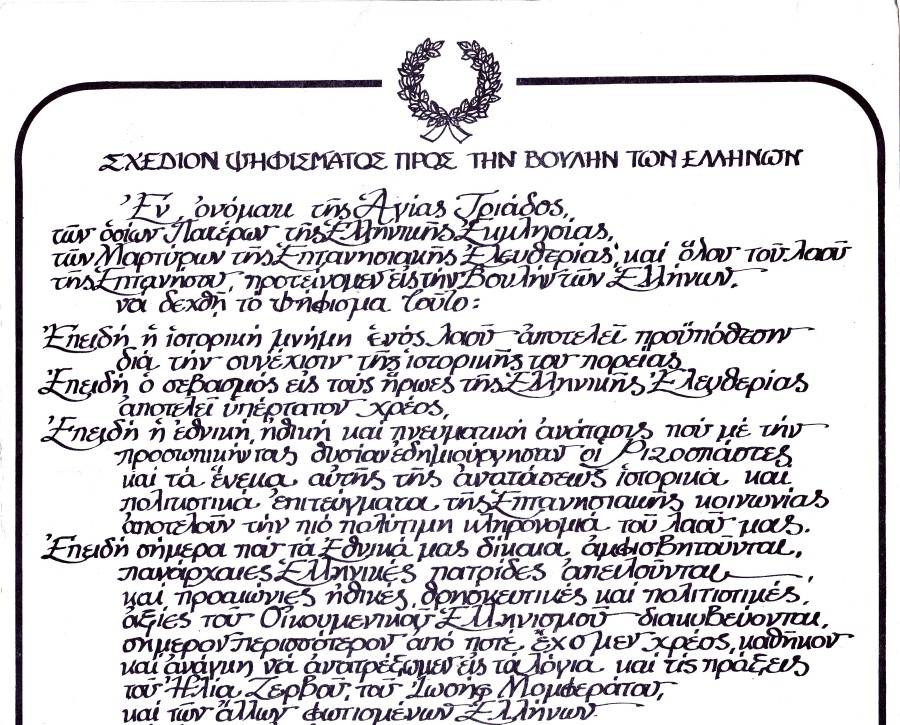 ΣΧΕΔΙΟΝ ΨΗΦΙΣΜΑΤΟΣ ΠΡΟΣ ΤΗΝ ΒΟΥΛΗΝ ΤΩΝ ΕΛΛΗΝΩΝ
Ἐν ὀνόματι τῆς Ἁγίας Τριάδος,
τῶν ὁσίων Πατέρων τῆς Ἑλληνικῆς Ἐκκλησίας,
τῶν Μαρτύρων τῆς Ἑπτανησιακῆς Ἐλευθερίας, καί ὅλου τοῦ λαοῦ
τῆς Ἑπτανήσου, προτείνομεν εἰς τήν Βουλήν τῶν Ἑλλήνων,
νά δεχθῆ τό ψήφισμα τοῦτο:
Ἐπειδή ἡ ἱστορική μνήμη ἑνός λαοῦ ἀποτελεῖ προϋπόθεσιν
διά τήν συνέχισιν τῆς ἱστορικῆς του πορείας
Ἐπειδή ὁ σεβασμός εἰς τούς ἥρωες τῆς Ἑλληνικῆς Ἐλευθερίας
ἀποτελεῖ ὑπέρτατον χρέος,
Ἐπειδή ἡ ἐθνική, ἠθική καί πνευματική ἀνάτασις πού μέ τήν
προσωπικήν τους θυσίαν ἐδημιούργησαν οἱ Ριζοσπάστες
καί τά ἕνεκα αὐτῆς τῆς ἀνατάσεως ἱστορικά καί
πολιτιστικά ἐπιτεύγματα τῆς Ἑπτανησιακῆς κοινωνίας
ἀποτελοῦν τήν πιό πολύτιμη κληρονομιά τοῦ λαοῦ μας.
Ἐπειδή σήμερα πού τά Ἐθνικά μας δίκαια ἀμφισβητοῦνται,
πανάρχαιες Ἑλληνικές πατρίδες ἀπειλοῦνται,
καί προαιώνιες ἠθικές, θρησκευτικές καί πολιτιστικές,
ἀξίες τοῦ Οἰκουμενικοῦ Ἑλληνισμοῦ διακυβεύονται,
σήμερον περισσότερον ἀπό ποτέ, ἔχομεν χρέος, καθῆκον
καί ἀνάγκη νά ἀνατρέξωμεν εἰς τα λόγια καί τίς πράξεις
τοῦ Ἠλία Ζερβοῦ, τοῦ Ἰωσήφ Μομφεράτου,
καί τῶν ἄλλων φωτισμένων Ἑλλήνων